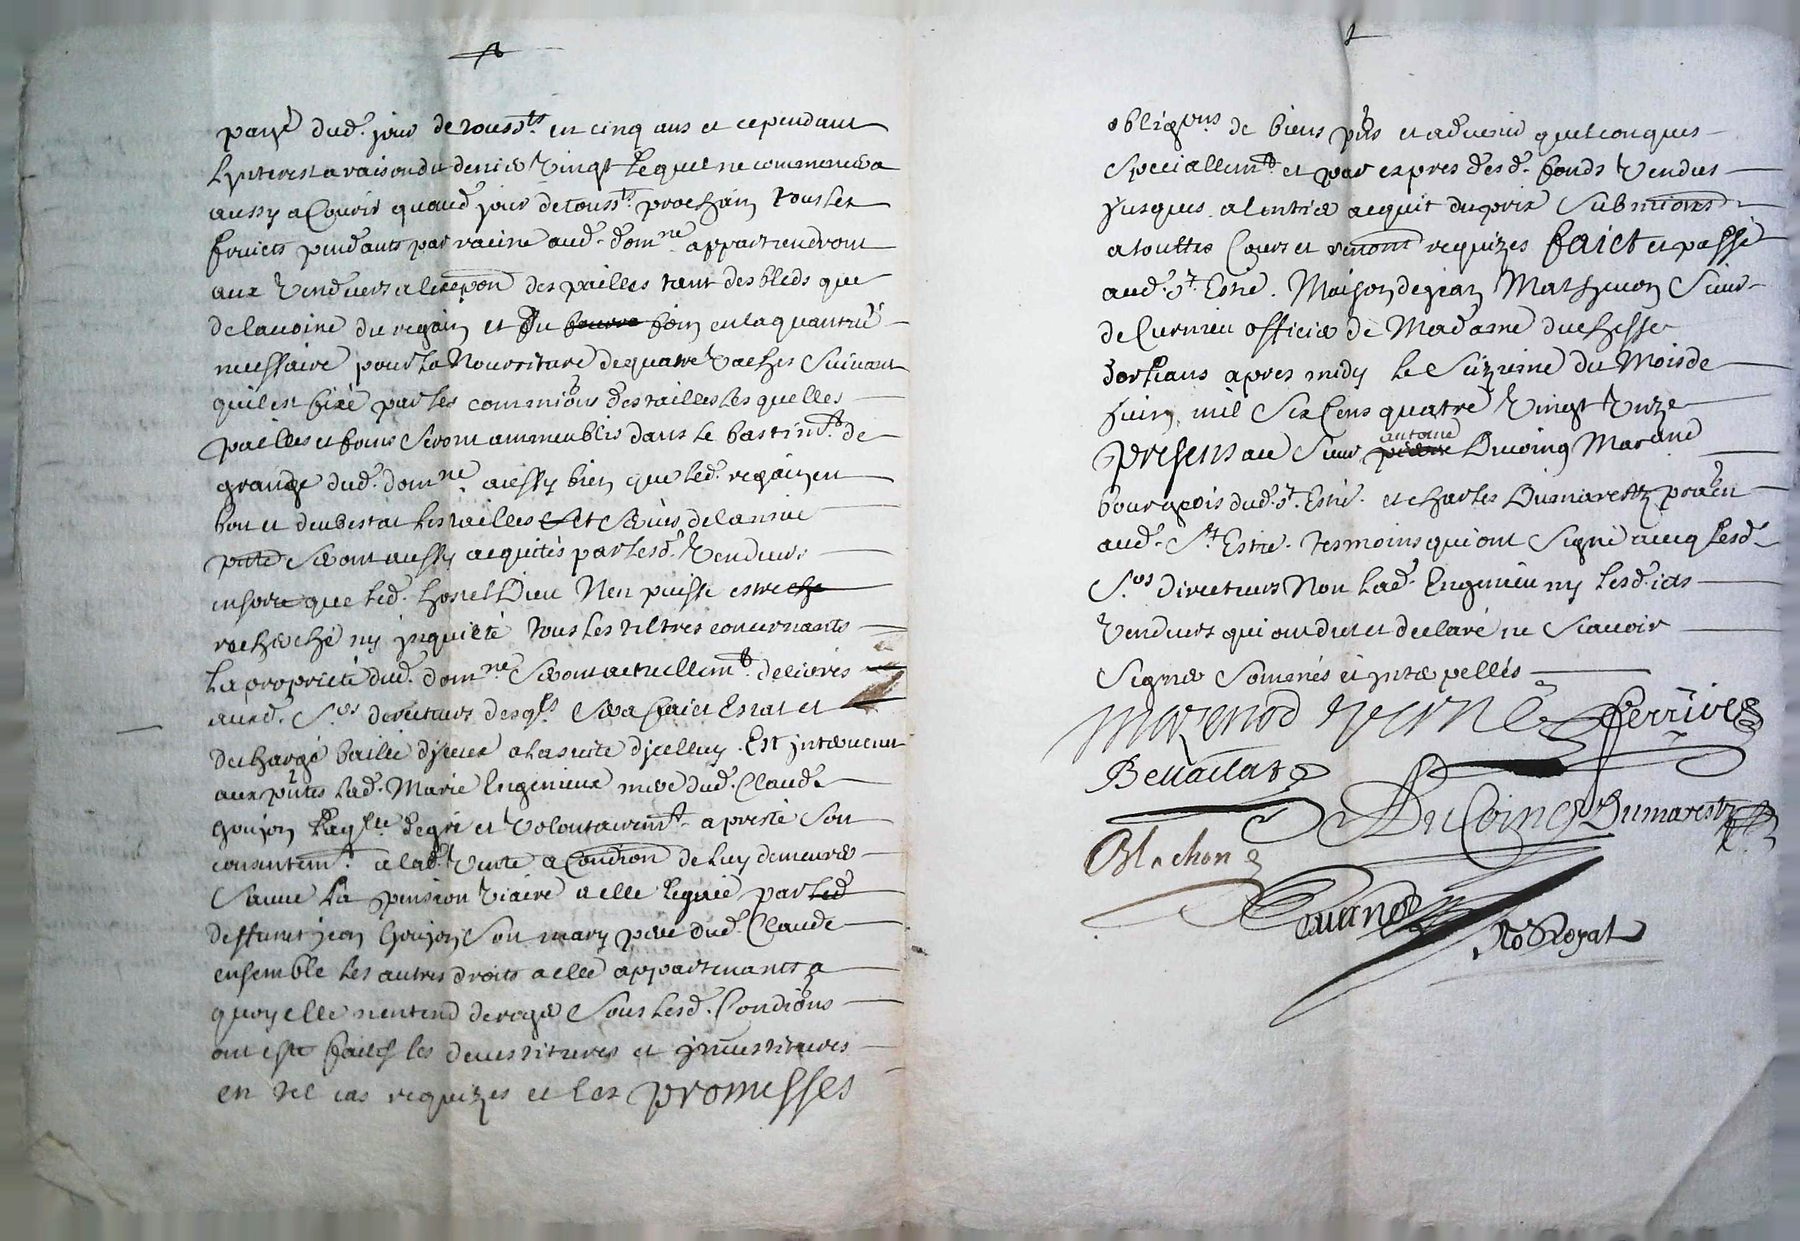 payé dud. jour de touss.ts en cinq ans et cependant
Lynterest a raison du denier vingt Lequel ne commencera
aussy a Courir quaud. jour de touss.ts prochain tous les
fruicts pendants par racine aud. dom.ne appartiendront
aux vendeurs a lexepon des pailles tant des bleds que
de lavoine du regain et du foin en la quantité
necessaire pour la Nourriture de quatre vaches Suivant
quil est fixé par les commions des tailles lesquelles
pailles et foins Seront ammeublis dans le bastim.t de
grange dud. dom.ne aussy bien que led. regain en
bon et deub estat les tailles et de lannee
Seront aussy acquités par lesd. vendeurs
en sorte que led. hostel Dieu Nen puisse estre
recherché ny jnquieté tous les tiltres concernants
La proprieté dud. dom.ne Seront actuellem.t delivrés
auxd. S.rs directeurs desq.ls Sera faict Estat et
decharge baillé dyceux a la suite dycelluy. Est jntervenue
aux pntes lad. Marie Engenieux mere dud. Claude
Goujon Laq.lle de gré et volontairem.t a presté Son
consentem.t a lad. vente a Condion de luy demeurer
Sauve La pension viaire a elle leguée par
deffunct jean Goujon Son mary pere dud. Claude
ensemble les autres droits a elle appartenants a
quoy elle nentend deroger Sous lesd. Condions
ont esté faictes les devestitures et jnvestitures
en tel cas requizes et les promesses
obligaons de biens pnts et advenir quelconques
Speciallem.t et par expres desd. fonds vendus
jusques a lentier acquit du prix Submions
a touttes Cours et renons requizes faict et passé
aud. S.t Estie. Maison de jean Mathevon Sieur
de Curnieu officier de Madame duchesse
dorleans apres midy le Seizieme du Mois de
juin mil Six Cens quatre vingt Unze
presens au Sieur antoine Ducoing Marand
bourgeois dud. S.t Estie. et charles Dumarestz pra.en
aud. S.t Estie. tesmoins qui ont Signé avecq lesd.
S.rs directeurs Non lad. Engenieu ny lesd. its
vendeurs qui ont dict et declaré ne Scavoir
Signer Sommés et jnterpellés
Mazenod Ferriol
Bellacla
DuCoing Dumarestz
Blachon
No Royal